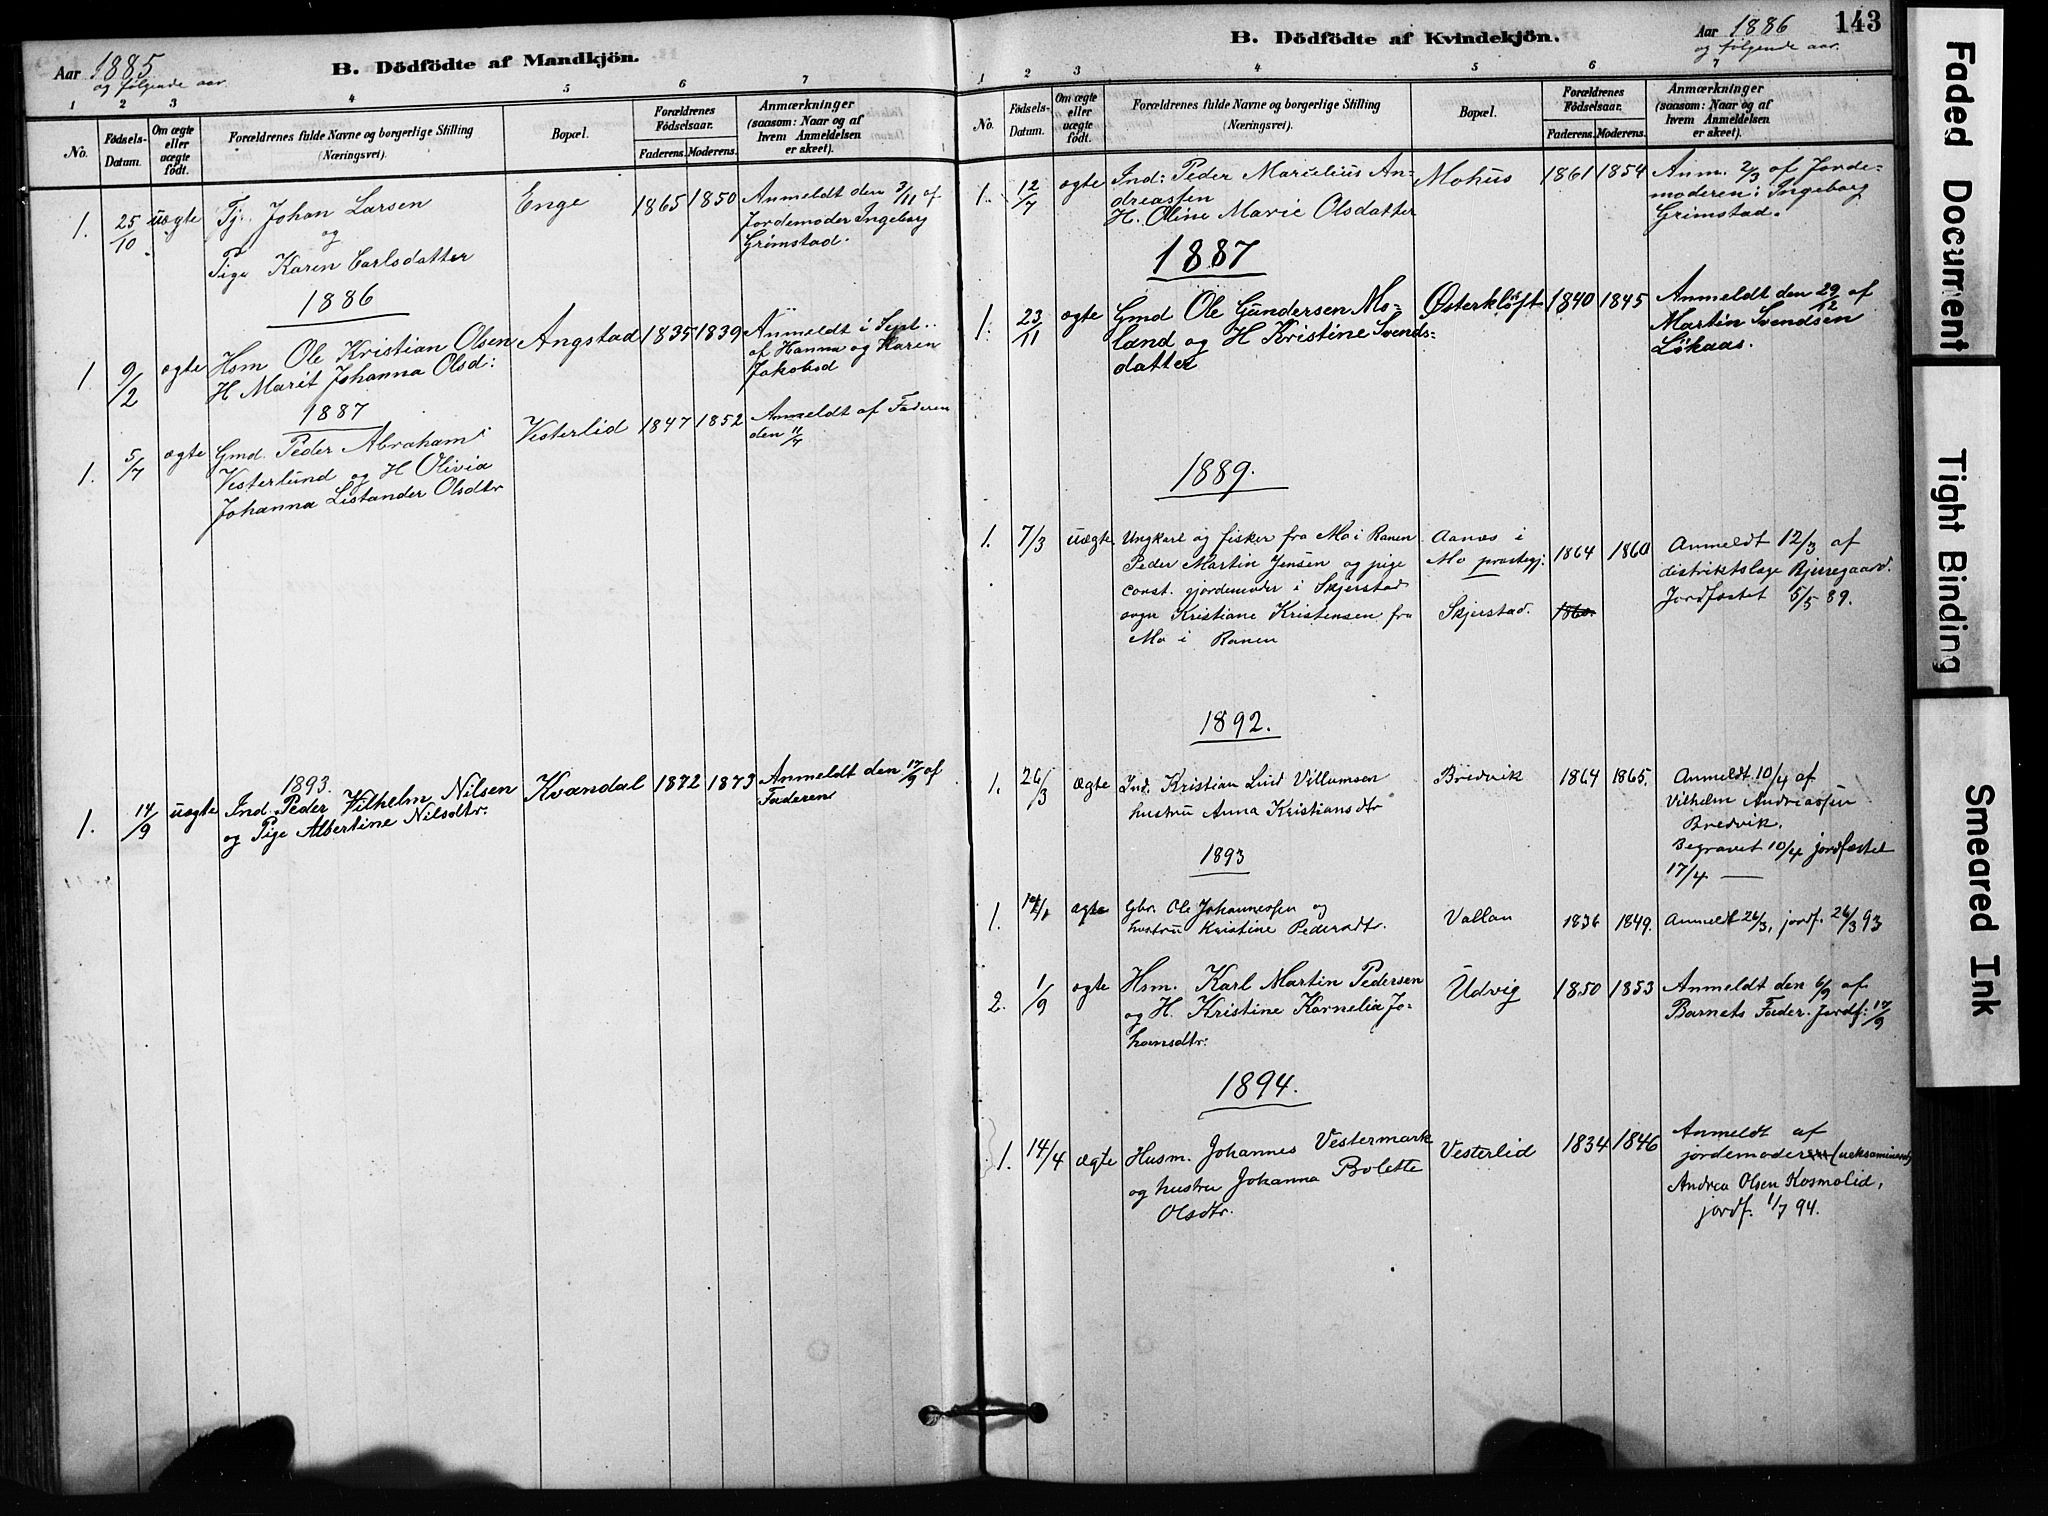 Aar 1885
og følgende aar.
B. Dödfödte af Mandkjön.
1
2
3
4
5
6
7
No.
Födsels-
Datum.
Om ægte
eller
uægte
födt.
Forældrenes fulde Navne og borgerlige Stilling
(Næringsvei).
Bopæl.
Forældrenes
Födselsaar.
Faderens. Moderens.
Anmærkninger
(saasom: Naar og af
hvem Anmeldelsen
er skeet).
1. 25/10 uægte Tj. Johan Larsen Enge 1865 1850 Anmeldt den 3/11 af
og Jordemoder Ingeborg
Pige Karen Carlsdatter Grimstad.
1886
1. 9/2 ægte Hsm Ole Kristian Olsen Angstad 1835 1839 Anmeldt i Sept.
H Marit Johanna Olsd: af Hanna og Karen
Jakobsd
1887
1. 5/7 ægte Gmd. Peder Abraham Vesterlid 1847 1852 Anmeldt af Faderen
Vesterlund og H Olivia den 11/7
Johanna Listander Olsdtr
1893.
1. 14/9 uægte Ind. Peder Vilhelm Nilsen Kvandal 1872 1873 Anmeldt den 17/9 af
og Pige Albertine Nilsdtr. Faderen
B. Dödfödte af Kvindekjön.
Aar 1886
og følgende aar.
143
1
2
3
4
5
6
7
No.
Födsels-
Datum.
Om ægte
eller
uægte
födt.
Forældrenes fulde Navne og borgerlige Stilling
(Næringsvei).
Bopæl.
Forældrenes
Födselsaar.
Faderens. Moderens.
Anmærkninger
(saasom: Naar og af
hvem Anmeldelsen
er skeet).
1. 12/7 ægte Ind: Peder Marcelius An- Mohus 1861 1854 Anm. 2/3 af Jorde-
dreassen moderen: Ingeborg
H. Oline Marie Olsdatter Grimstad.
1887
1. 23/11 ægte Gmd Ole Gundersen Mo- Østerkløft 1840 1845 Anmeldt den 29/12 af
land og H Kristine Svends- Martin Svendsen
datter Løkaas.
1889.
1. 7/3 uægte Ungkarl og fisker fra Mo i Ranen Aanæs i 1864 1860 Anmeldt 12/3 af
Peder Martin Jensen og pige Mo prestegj. distriktslæge Bjerregaard.
const. gjordemoder i Skjerstad Jordfæstet 5/5 89.
sogn Kristiane Kristensen fra Skjerstad. 1860
Mo i Ranen
1892.
1. 26/3 ægte Ind. Kristian Lind Villumsen Bredvik 1864 1865. Anmeldt 10/4 af
hustru Anna Kristiansdtr Vilhelm Andreassen
Bredvik.
Begravet 10/4 jordfæstet
17/4 —
1893
1. ægte Gbr. Ole Johannessen og Vallan 1836 1849. Anmeldt 26/3, jordf. 26/3 93
hustru Kristine Pedersdtr.
2. 1/9 ægte Hsm. Karl Martin Pedersen Udvig 1850 1853 Anmeldt den 6/9 af
og H. Kristine Kornelia Jo- Barnets Fader. Jordf: 17/9
hansdtr:
1894.
1. 14/4 ægte Husm. Johannes Vestermark Vesterlid 1834 1846 Anmeldt af
og hustru Johanna Bolette jordemoder (ueksamineret)
Olsdtr. Andrea Olsen Kosmolid,
jordf. 1/7 94.
Faded Document
Tight Binding
Smeared Ink